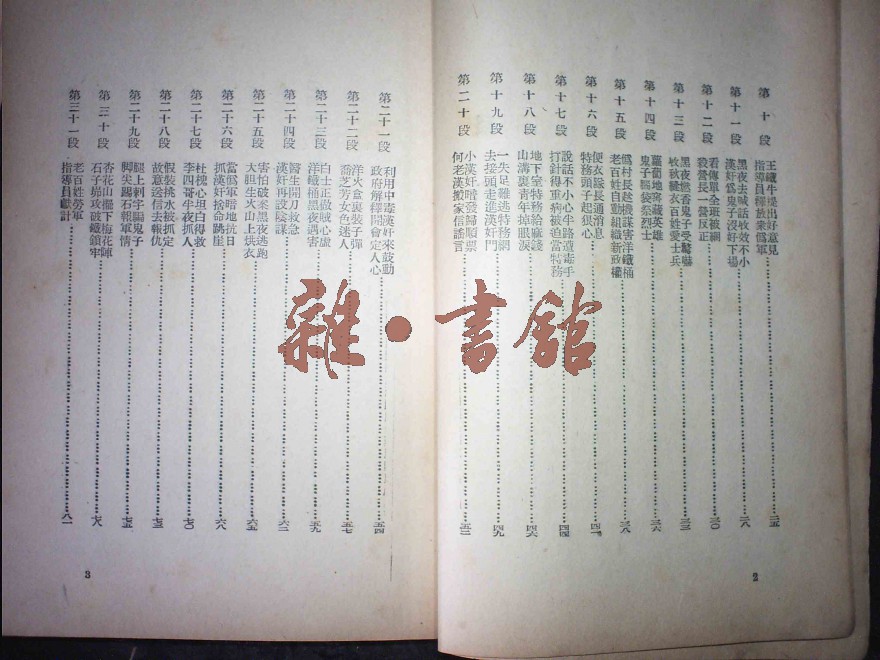 第十段
王鐵牛提出好意見
指導員釋放衆偽軍
二五
第十一段
黑夜去喊話收效不小
漢奸爲鬼子沒好下場
二八
第十二段
看傳單全班被綑
殺營長一營反正
三〇
第十三段
黑夜燃香鬼子受驚嚇
收秋織衣百姓愛士兵
三三
第十四段
蘿蔔地窖藏英雄
鬼子腦袋祭烈士
三六
第十五段
偽村長趁機謀害洋鐵桶
老百姓自動組織新政權
三八
第十六段
便衣隊長通消息
特務頭子起狠心
四一
第十七段
說話不小心半路遭毒手
打針得重病被迫當特務
四四
第十八段
地下室特務給麻錢
山溝裏青年掉眼淚
四六
第十九段
一失足難逃特務網
去接頭走進漢奸門
四九
第二十段
小漢奸暗發歸順票
何老漢搬家信謠言
五二
2
第二十一段
利用中毒漢奸來鼓動
政府解釋開會定人心
五四
第二十二段
洋火盒裏裝子彈
喬芝芳女色迷人
五七
第二十三段
白士正撒賊心虛
洋鐵桶黑夜遇害
五九
第二十四段
醫生開刀救急
漢奸再設陰謀
六二
第二十五段
害怕破案黑夜逃跑
大胆生火山上烘衣
六五
第二十六段
當偽軍暗地抗日
抓漢奸捨命跳崖
六八
第二十七段
杜槐心坦白得救
李四哥半夜抓人
七〇
第二十八段
假裝挑水被抓定
故意送信去報仇
七三
第二十九段
腿上刺字騙鬼子
脚尖踢石報軍情
七五
第三十段
杏花山擺下梅花陣
石子峁攻破鐵鎖牢
七八
第三十一段
老百姓勞軍
指導員獻計
八一
3
雜·書館